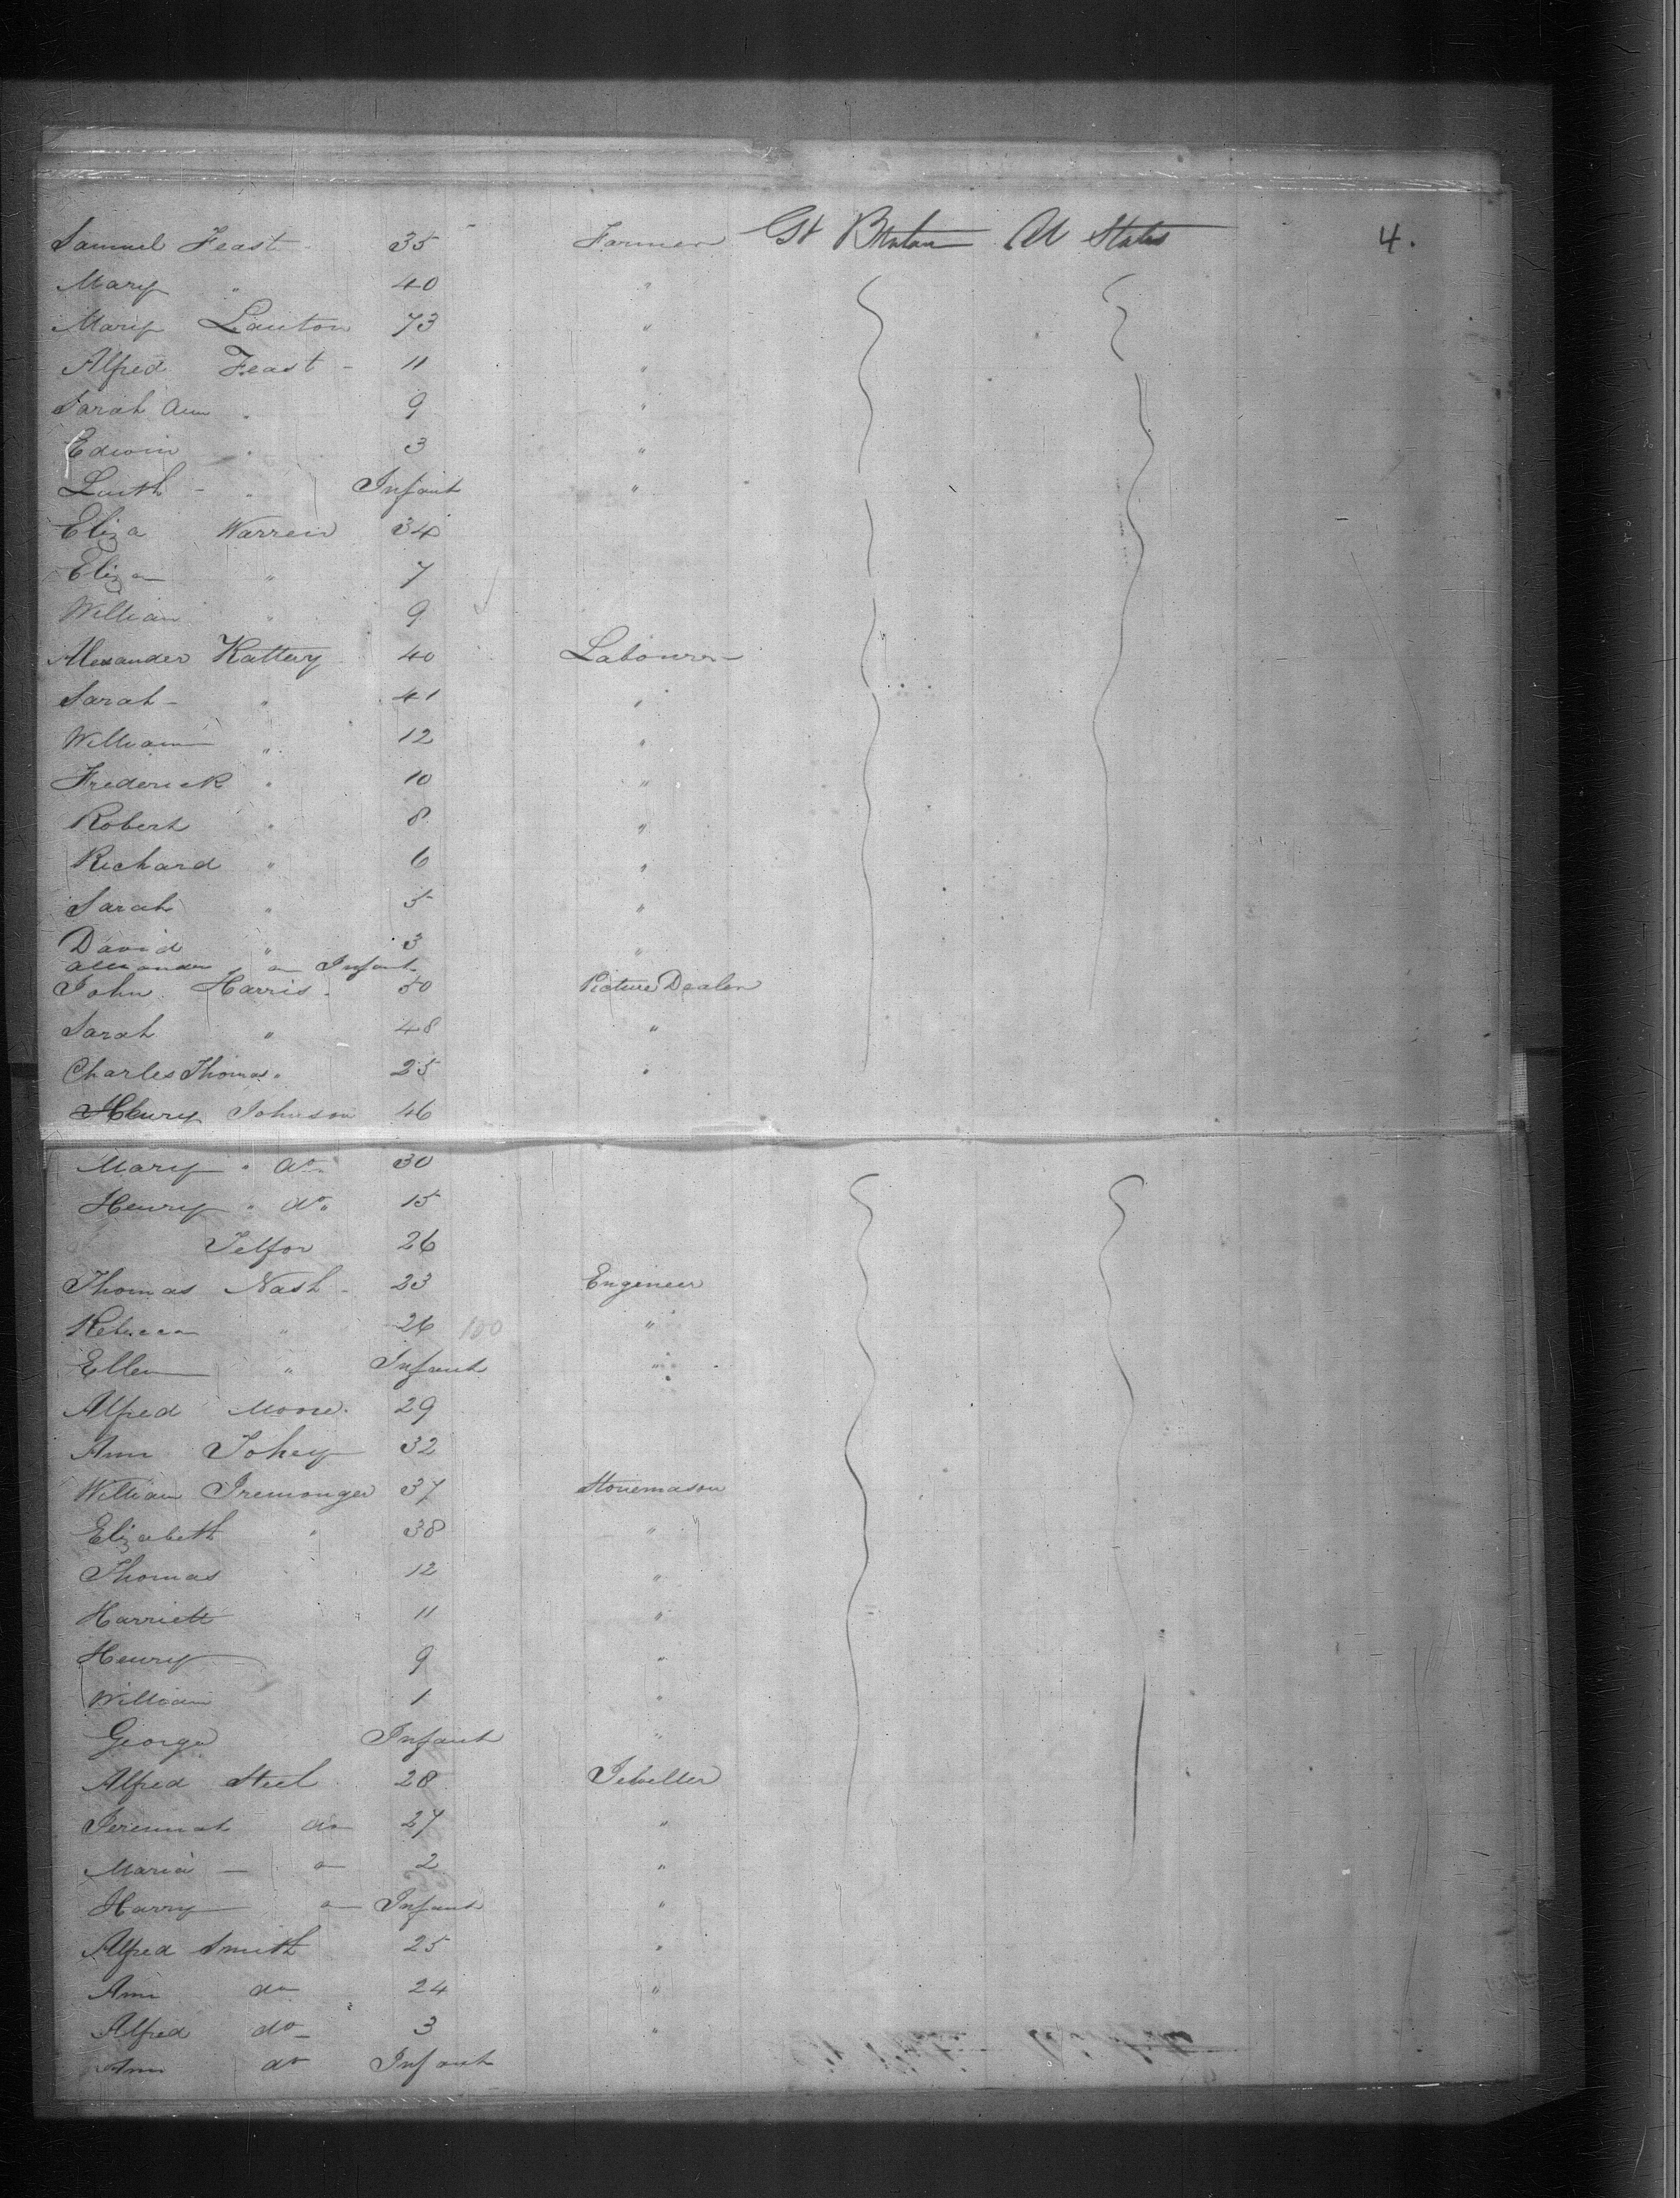 Samuel Feast - 35 Farmer Gt Britain U States 4.
Mary " 40 "
Mary Lauton 73 "
Alfred Feast - 11 "
Sarah Ann " 9 "
Edwin " 3 "
- " Infant "
Eliza Warren 34
Eliza " 7
William " 9
Alexander Kattery 40 Labourer
Sarah - " 41 "
William " 12 "
Frederick " 10 "
Robert " 8 "
Richard " 6 "
Sarah " 5 "
David " 3 "
Alexander " Infant
John Harris - 50 Picture Dealer
Sarah " 48 "
Charles Thomas " 25 "
Henry Johnson 46
Mary " do 30
Henry " do 15
Telfor 26
Thomas Nash - 23 Engineer
Rebecca " 26 100 "
Ellen " Infant "
Alfred Moore 29
Ann Tohey 32
William Iremonger 37 Stonemason
Elizabeth " 38 "
Thomas 12 "
Harriett 11 "
Henry 9 "
William 1 "
George Infant "
Alfred Steel 28 Jeweller
do 27 "
Maria - do 2 "
Harry do Infant "
Alfred Smith 25 "
Ann do 24 "
Alfred do 3 "
Ann do Infant